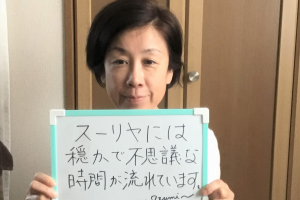 スーリヤには
穏かで不思議な
時間が流れています。
azumi～